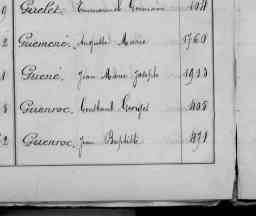 9 Guelet, Emmanuel Germain 404
2 Guémené, Auguste Marie 1760
1 Guené, Jean Marie Joseph 1913
8 Guenroc, Georges 408
2 Guenroc, Jean Baptiste 871